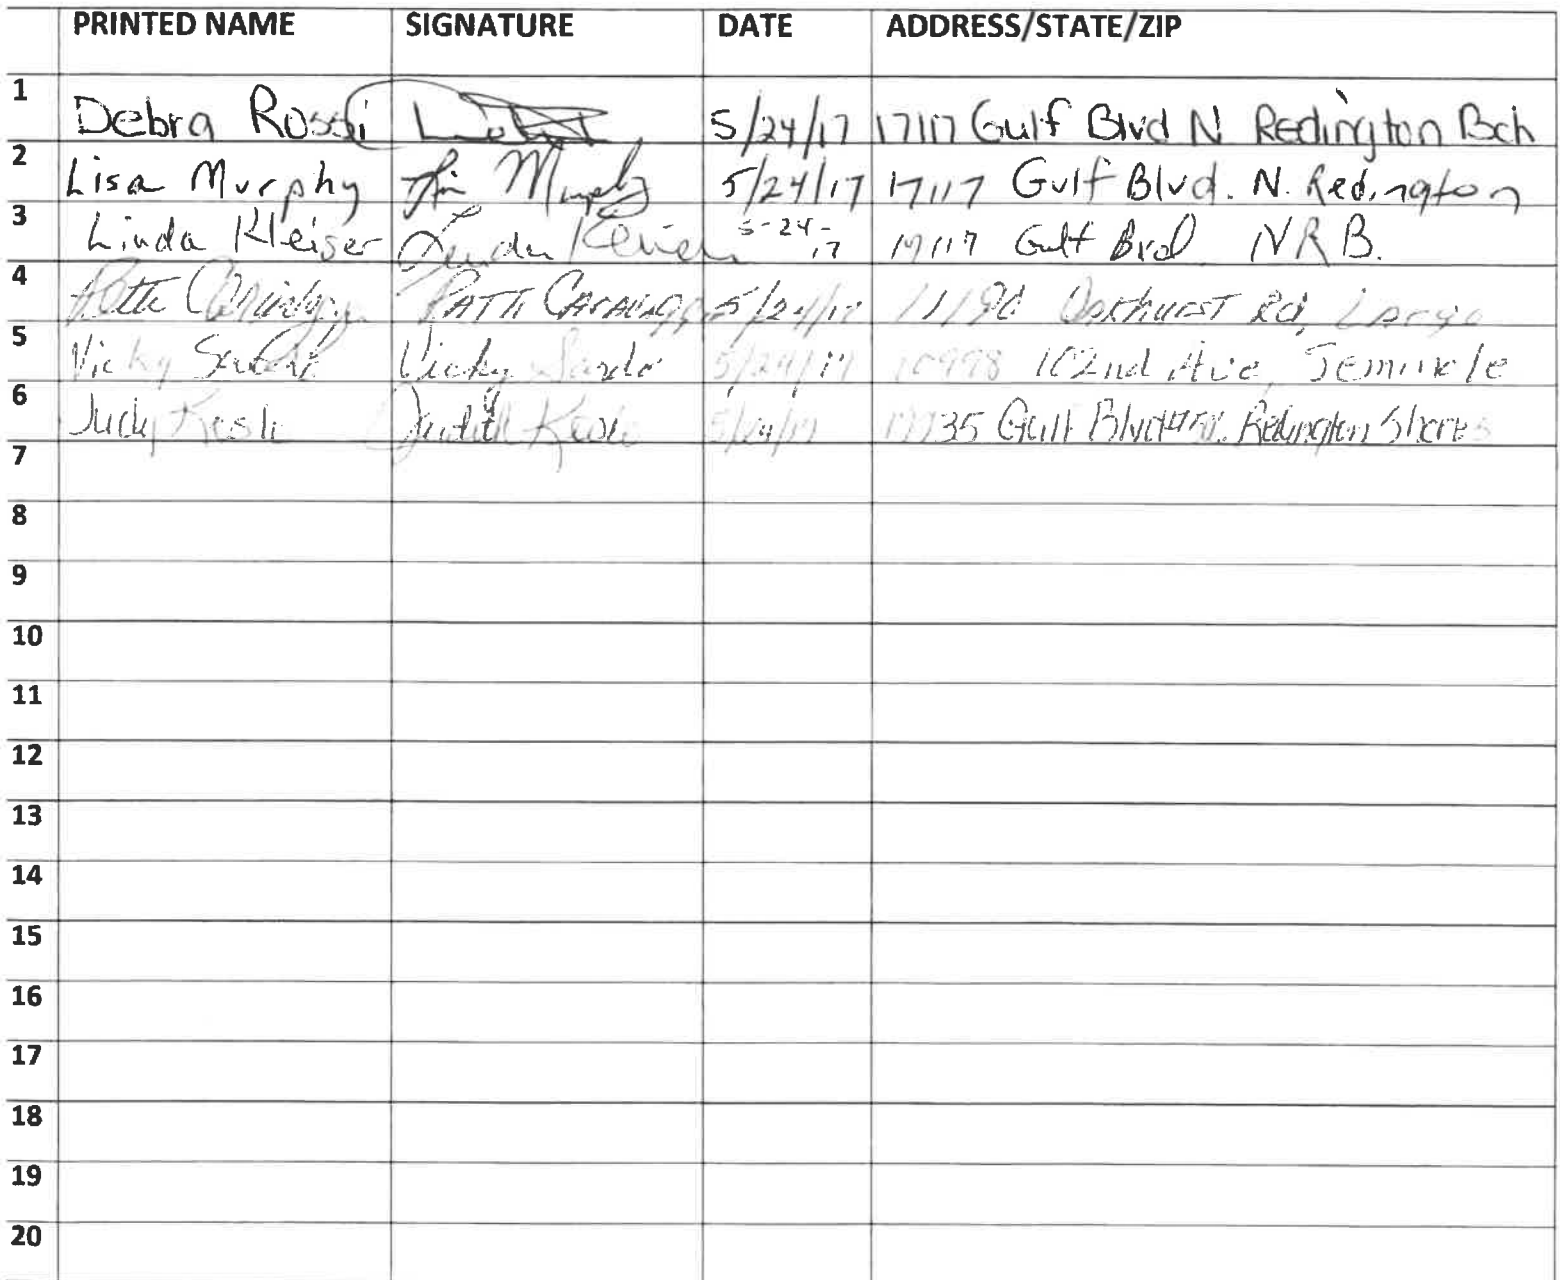 PRINTED NAME SIGNATURE DATE ADDRESS/STATE/ZIP
1 Debra Rossi 5/24/17 17117 Gulf Blvd N Redington Bch
2 Lisa Murphy Murphy 5/24/17 17117 Gulf Blvd. N. Redington
3 Linda Kleiser Linda 5-24-17 17117 Gulf Bvd NRB.
4 PATTI 5/24/17 Oakhurst Rd, Largo
5 Vicky Vicky 5/24/17 10998 102nd Ave, Seminole
6 Judy Judith 5/24/17 Gulf Blvd Redington Shores
7
8
9
10
11
12
13
14
15
16
17
18
19
20